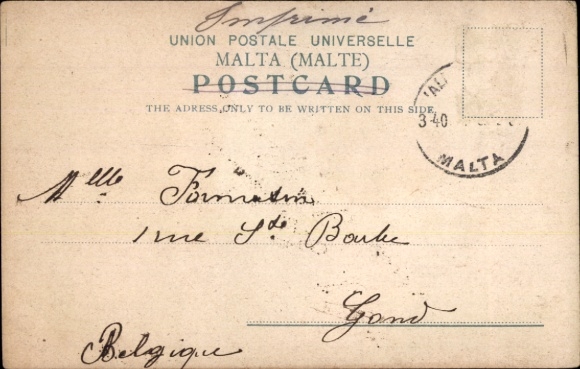 Imprimé
UNION POSTALE UNIVERSELLE
MALTA (MALTE)
POSTCARD
THE ADRESS ONLY TO BE WRITTEN ON THIS SIDE
3 40
MALTA
Melle
rue Ste Barbe
Gand
Belgique